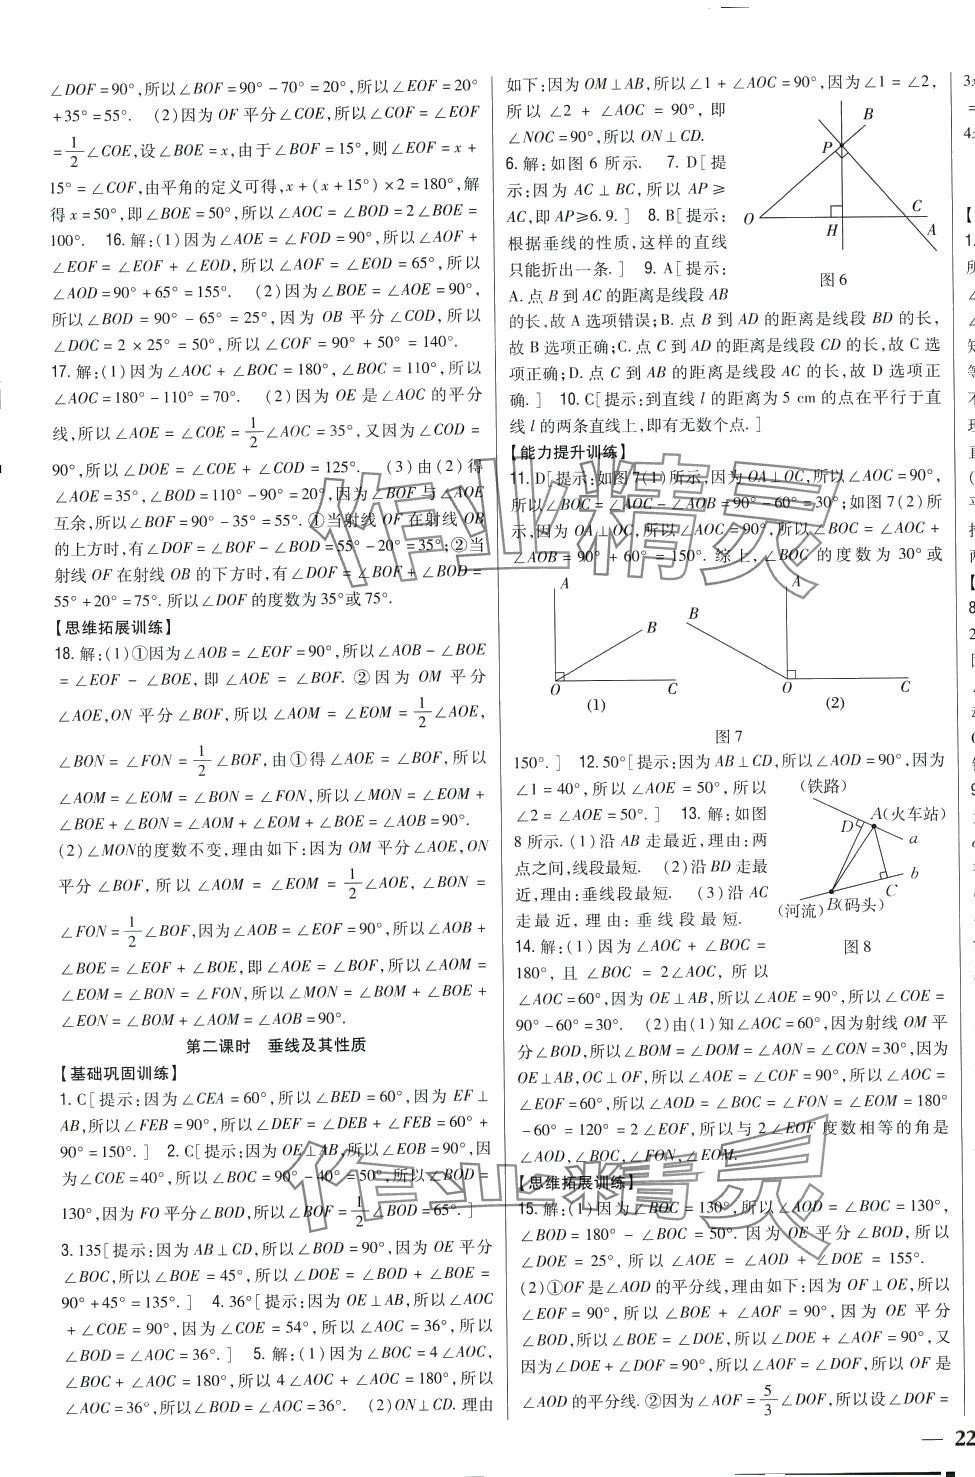 ∠DOF=90°,所以∠BOF=90°-70°=20°,所以∠EOF=20°
+35°=55°. (2)因为OF平分∠COE,所以∠COF=∠EOF
=1/2∠COE,设∠BOE=x,由于∠BOF=15°,则∠EOF=x+
15°=∠COF,由平角的定义可得,x+(x+15°)×2=180°,解
得x=50°,即∠BOE=50°,所以∠AOC=∠BOD=2∠BOE=
100°. 16.解:(1)因为∠AOE=∠FOD=90°,所以∠AOF+
∠EOF=∠EOF+∠EOD,所以∠AOF=∠EOD=65°,所以
∠AOD=90°+65°=155°. (2)因为∠BOE=∠AOE=90°,
所以∠BOD=90°-65°=25°,因为OB平分∠COD,所以
∠DOC=2×25°=50°,所以∠COF=90°+50°=140°.
17.解:(1)因为∠AOC+∠BOC=180°,∠BOC=110°,所以
∠AOC=180°-110°=70°. (2)因为OE是∠AOC的平分
线,所以∠AOE=∠COE=1/2∠AOC=35°,又因为∠COD=
90°,所以∠DOE=∠COE+∠COD=125°. (3)由(2)得
∠AOE=35°,∠BOD=110°-90°=20°,因为∠BOF与∠AOE
互余,所以∠BOF=90°-35°=55°.①当射线OF在射线OB
的上方时,有∠DOF=∠BOF-∠BOD=55°-20°=35°;②当
射线OF在射线OB的下方时,有∠DOF=∠BOF+∠BOD=
55°+20°=75°.所以∠DOF的度数为35°或75°.
【思维拓展训练】
18.解:(1)①因为∠AOB=∠EOF=90°,所以∠AOB-∠BOE
=∠EOF-∠BOE,即∠AOE=∠BOF.②因为OM平分
∠AOE,ON平分∠BOF,所以∠AOM=∠EOM=1/2∠AOE,
∠BON=∠FON=1/2∠BOF,由①得∠AOE=∠BOF,所以
∠AOM=∠EOM=∠BON=∠FON,所以∠MON=∠EOM+
∠BOE+∠BON=∠AOM+∠EOM+∠BOE=∠AOB=90°.
(2)∠MON的度数不变,理由如下:因为OM平分∠AOE,ON
平分∠BOF,所以∠AOM=∠EOM=1/2∠AOE,∠BON=
∠FON=1/2∠BOF,因为∠AOB=∠EOF=90°,所以∠AOB+
∠BOE=∠EOF+∠BOE,即∠AOE=∠BOF,所以∠AOM=
∠EOM=∠BON=∠FON,所以∠MON=∠BOM+∠BOE+
∠EON=∠BOM+∠AOM=∠AOB=90°.
第二课时 垂线及其性质
【基础巩固训练】
1.C[提示:因为∠CEA=60°,所以∠BED=60°,因为EF⊥
AB,所以∠FEB=90°,所以∠DEF=∠DEB+∠FEB=60°+
90°=150°.] 2.C[提示:因为OE⊥AB,所以∠EOB=90°,因
为∠COE=40°,所以∠BOC=90°-40°=50°,所以∠BOD=
130°,因为FO平分∠BOD,所以∠BOF=1/2∠BOD=65°.]
3.135[提示:因为AB⊥CD,所以∠BOD=90°,因为OE平分
∠BOC,所以∠BOE=45°,所以∠DOE=∠BOD+∠BOE=
90°+45°=135°.] 4.36°[提示:因为OE⊥AB,所以∠AOC
+∠COE=90°,因为∠COE=54°,所以∠AOC=36°,所以
∠BOD=∠AOC=36°.] 5.解:(1)因为∠BOC=4∠AOC,
∠BOC+∠AOC=180°,所以4∠AOC+∠AOC=180°,所以
∠AOC=36°,所以∠BOD=∠AOC=36°. (2)ON⊥CD.理由
如下:因为OM⊥AB,所以∠1+∠AOC=90°,因为∠1=∠2,
所以∠2+∠AOC=90°,即
∠NOC=90°,所以ON⊥CD.
6.解:如图6所示. 7.D[提
示:因为AC⊥BC,所以AP≥
AC,即AP≥6.9.] 8.B[提示:
根据垂线的性质,这样的直线
只能折出一条.] 9.A[提示:
B
P
O
H
C
A
图6
A.点B到AC的距离是线段AB
的长,故A选项错误;B.点B到AD的距离是线段BD的长,
故B选项正确;C.点C到AD的距离是线段CD的长,故C选
项正确;D.点C到AB的距离是线段AC的长,故D选项正
确.] 10.C[提示:到直线l的距离为5 cm的点在平行于直
线l的两条直线上,即有无数个点.]
【能力提升训练】
11.D[提示:如图7(1)所示,因为OA⊥OC,所以∠AOC=90°,
所以∠BOC=∠AOC-∠AOB=90°-60°=30°;如图7(2)所
示,因为OA⊥OC,所以∠AOC=90°,所以∠BOC=∠AOC+
∠AOB=90°+60°=150°.综上,∠BOC的度数为30°或
A
B
O
C
(1)
A
B
O
C
(2)
图7
150°.] 12.50°[提示:因为AB⊥CD,所以∠AOD=90°,因为
∠1=40°,所以∠AOE=50°,所以
∠2=∠AOE=50°.] 13.解:如图
8所示.(1)沿AB走最近,理由:两
点之间,线段最短. (2)沿BD走最
近,理由:垂线段最短. (3)沿AC
走最近,理由:垂线段最短.
(铁路)
A(火车站)
D
a
b
C
B(码头)
(河流)
图8
14.解:(1)因为∠AOC+∠BOC=
180°,且∠BOC=2∠AOC,所以
∠AOC=60°,因为OE⊥AB,所以∠AOE=90°,所以∠COE=
90°-60°=30°. (2)由(1)知∠AOC=60°,因为射线OM平
分∠BOD,所以∠BOM=∠DOM=∠AON=∠CON=30°,因为
OE⊥AB,OC⊥OF,所以∠AOE=∠COF=90°,所以∠AOC=
∠EOF=60°,所以∠AOD=∠BOC=∠FON=∠EOM=180°
-60°=120°=2∠EOF,所以与2∠EOF度数相等的角是
∠AOD,∠BOC,∠FON,∠EOM.
【思维拓展训练】
15.解:(1)因为∠BOC=130°,所以∠AOD=∠BOC=130°,
∠BOD=180°-∠BOC=50°.因为OE平分∠BOD,所以
∠DOE=25°,所以∠AOE=∠AOD+∠DOE=155°.
(2)①OF是∠AOD的平分线,理由如下:因为OF⊥OE,所以
∠EOF=90°,所以∠BOE+∠AOF=90°,因为OE平分
∠BOD,所以∠BOE=∠DOE,所以∠DOE+∠AOF=90°,又
因为∠DOE+∠DOF=90°,所以∠AOF=∠DOF,所以OF是
∠AOD的平分线.②因为∠AOF=5/3∠DOF,所以设∠DOF=
22
作业精灵
作业精灵